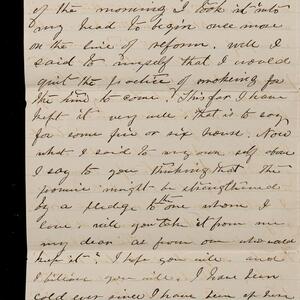 of the morning I took it into
my head to begin once more
on the line of reform. Well I
said to myself that I would
quit the practice of smoking for
the time to come. Thus far I have
kept it very well, that is to say
for some five or six hours. Now
what I said to my own self above
I say to you thinking that the
promise might be strengthened
by a pledge to one whom I
love. will you take it from me
my dear as from one who would
keep it? I hope you will and
I believe you will. I have been
cold ever since I have been up here